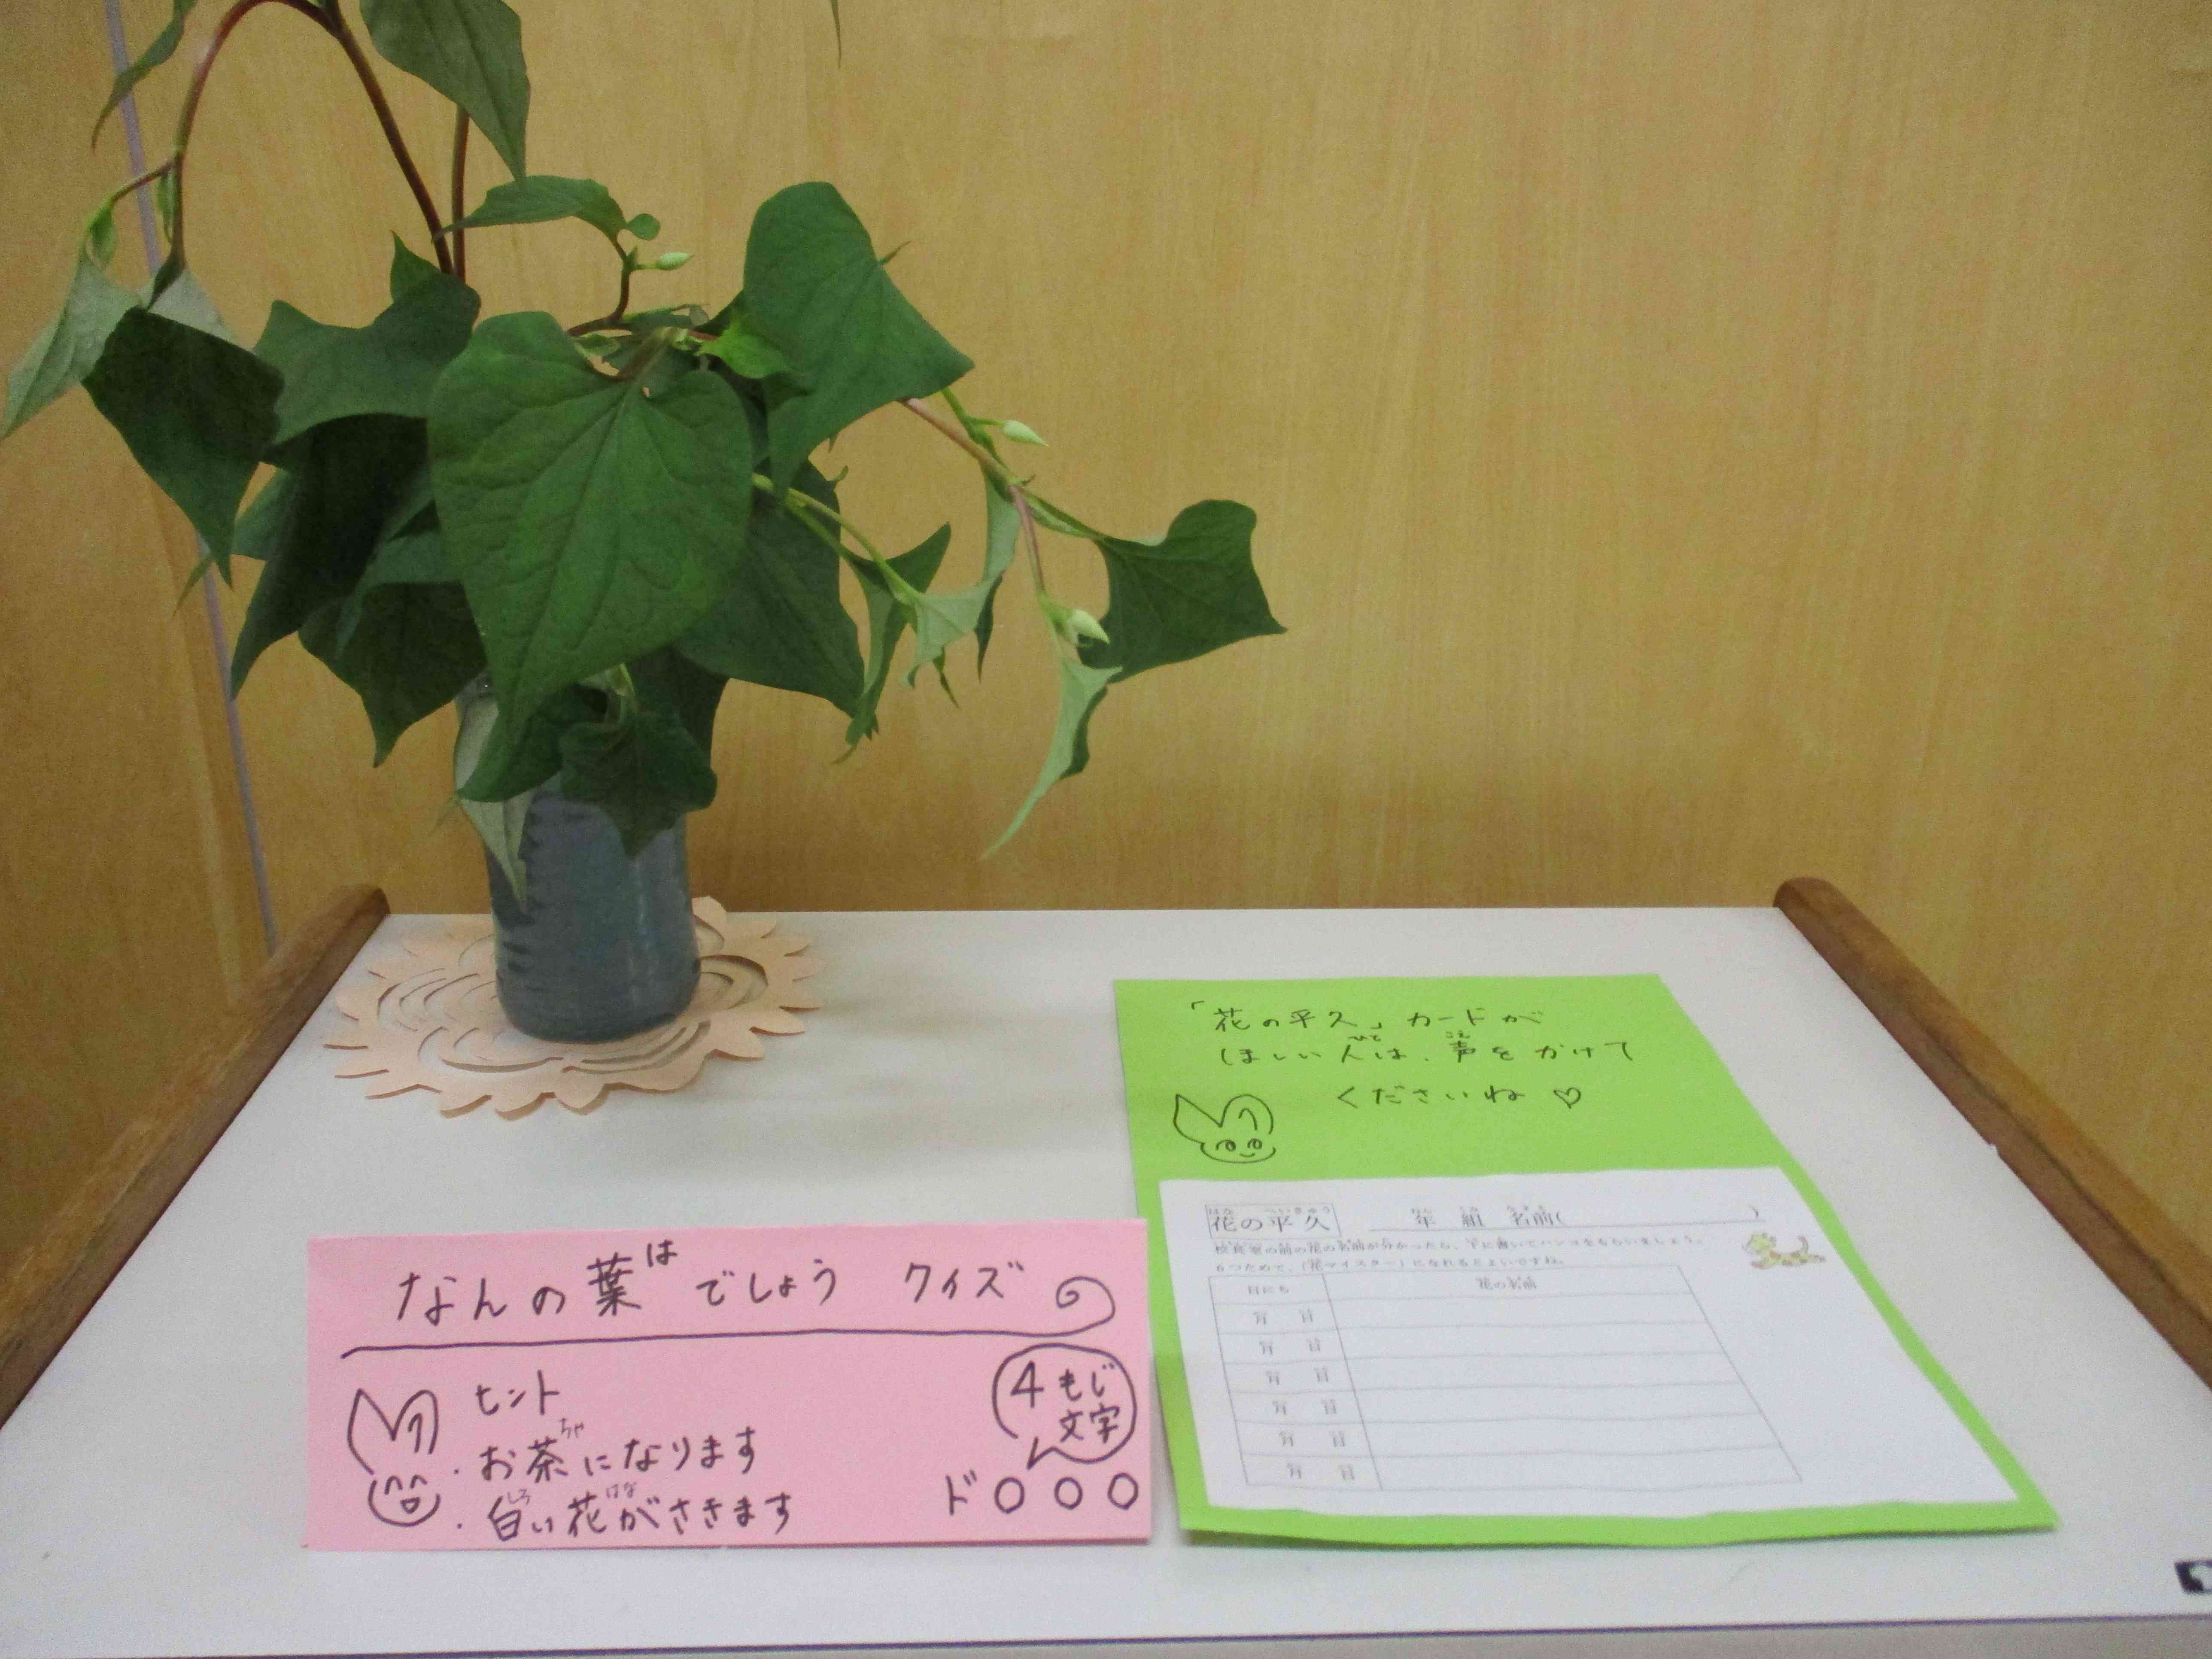 なんの葉は でしょう クイズ
ヒント
・お茶ちゃになります
・白しろい花はながさきます
4文字もじ
ド〇〇〇
「花の平久」カードが
ほしい人ひとは、声こえをかけて
くださいね♡
花の平久 年 組 名前( )
日にち 花の名前
月 日
月 日
月 日
月 日
月 日
月 日